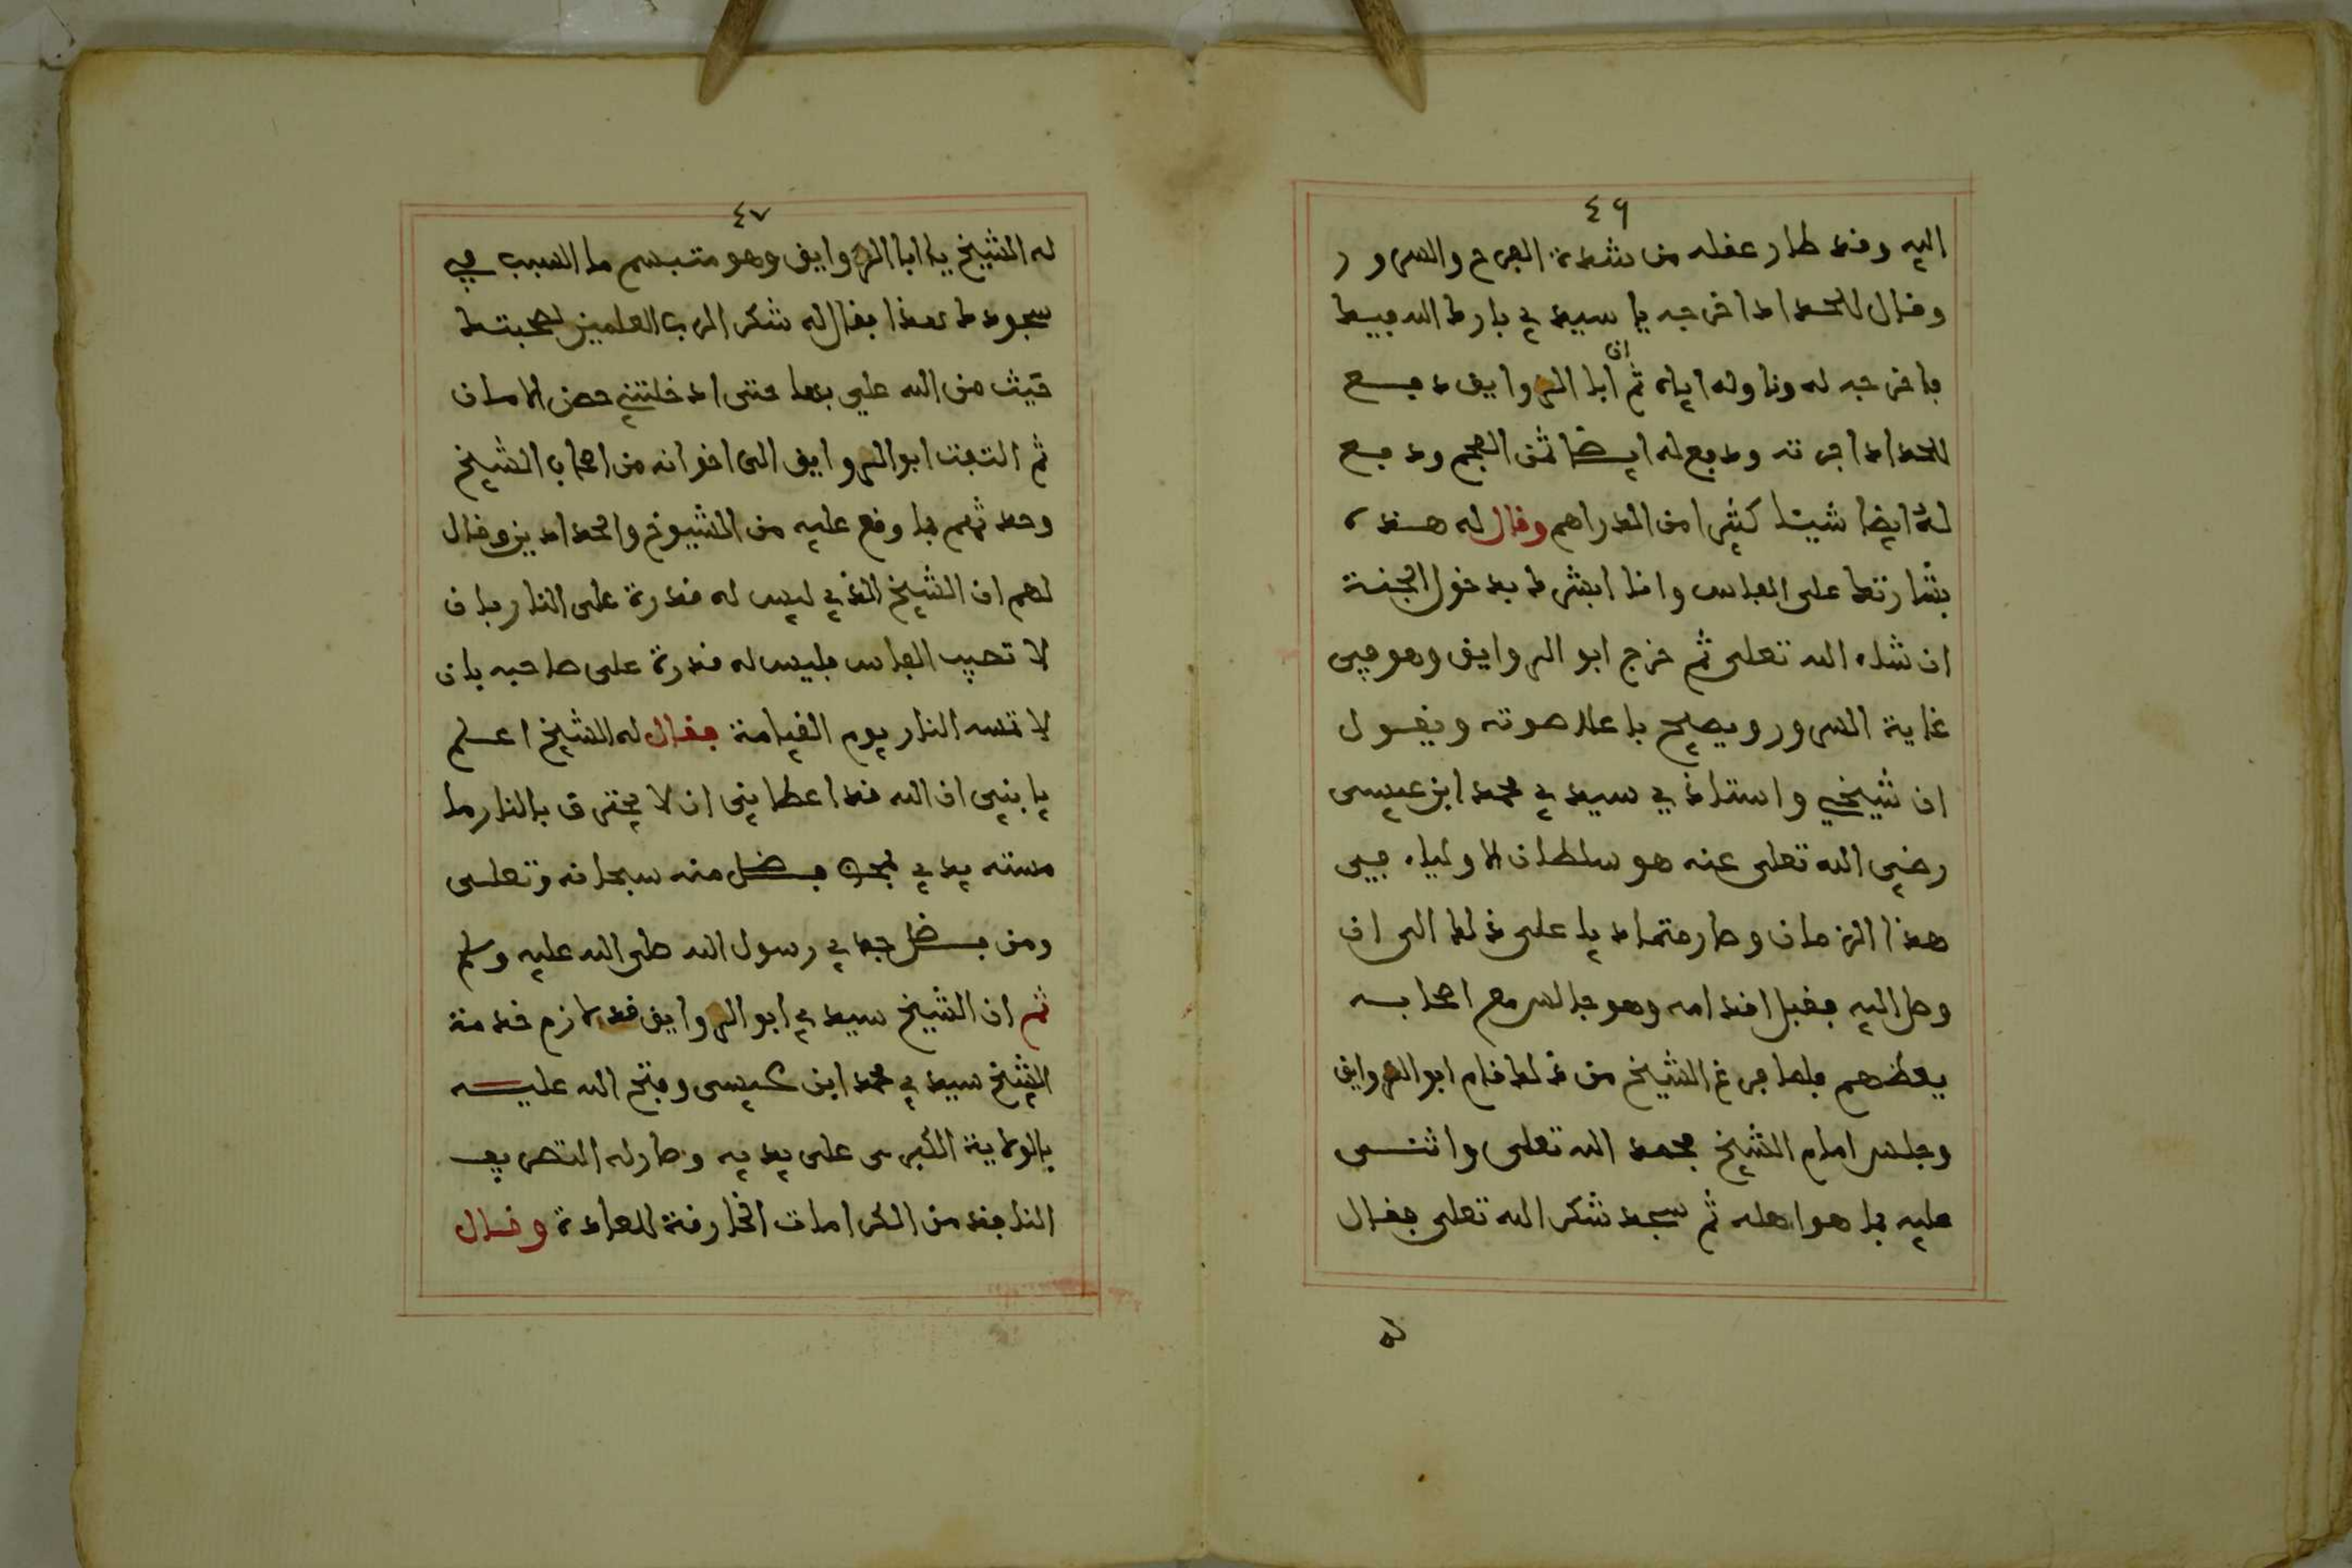 ٤٦
اليه وقد طار عقله من شدة الفرح والسرور
وقال للحداد اخرجه يا سيدي بارك الله فيك
فاخرجه له وناوله اياه ثم ان ابا الروايق دفع
للحداد اجرته ودفع له ايضا ثمن الفحم ودفع
له ايضا شيئا كثيرا من الدراهم وقال له هذه
بشارتك على الفاس وانا ابشرك بدخول الجنة
ان شاء الله تعلى ثم خرج ابو الروايق وهو في
غاية السرور ويصيح باعلا صوته ويقول
ان شيخي واستاذي سيدي محمد ابن عيسى
رضي الله تعلى عنه هو سلطان الاولياء في
هذا الزمان وصار متماديا على ذلك الى ان
وصل اليه فقبل اقدامه وهو جالس مع اصحابه
يعظهم فلما فرغ الشيخ من ذلك قام ابو الروايق
وجلس امام الشيخ فحمد الله تعلى واثنى
عليه بما هو اهله ثم سجد شكر الله تعلى فقال
له
٤٧
له الشيخ يا ابا الروايق وهو متبسم ما السبب في
سجودك هذا فقال له شكر الرب العلمين لصحبتك
حيث من الله علي بها حتى ادخلتني حصن الامان
ثم التفت ابو الروايق الى اخوانه من اصحاب الشيخ
وحدثهم بما وقع عليه من الشيوخ والحدادين وقال
لهم ان الشيخ الذي ليس له قدرة على النار بان
لا تصيب الفاس فليس له قدرة على صاحبه بان
لا تمسه النار يوم القيامة فقال له الشيخ اعلم
يا بني ان الله قد اعطاني ان لا يحترق بالنار ما
مسته يدي بفضل منه سبحانه وتعلى
ومن فضل جدي رسول الله صلى الله عليه وسلم
ثم ان الشيخ سيدي ابو الروايق قد لازم خدمة
الشيخ سيدي محمد ابن عيسى وفتح الله عليه
بالولاية الكبرى على يديه وصار له التصريف
النافذ من الكرامات الخارقة للعادة وقال